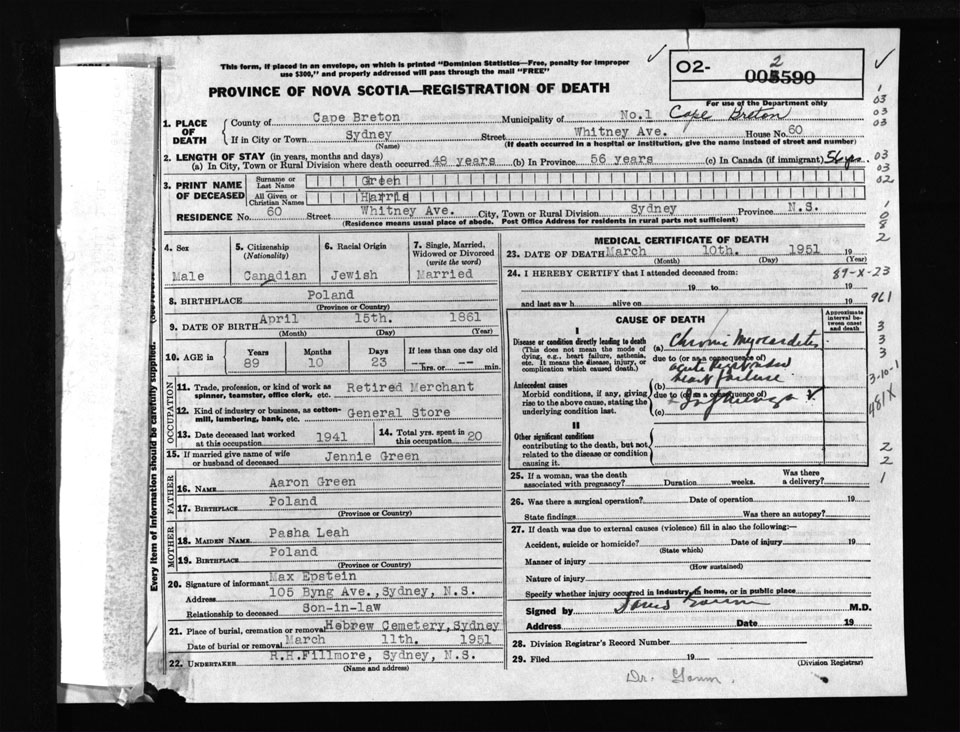 This form, if placed in an envelope, on which is printed "Dominion Statistics—Free, penalty for improper
use $300," and properly addressed will pass through the mail "FREE"
PROVINCE OF NOVA SCOTIA—REGISTRATION OF DEATH
O2-
2
005590
For use of the Department only
1. PLACE OF DEATH
County of Cape Breton Municipality of No.1 Cape Breton
If in City or Town Sydney Street Whitney Ave. House No. 60
(Name) (If death occurred in a hospital or institution, give the name instead of street and number)
2. LENGTH OF STAY (in years, months and days)
(a) In City, Town or Rural Division where death occurred 48 years (b) In Province 56 years (c) In Canada (if immigrant) 56 yrs.
3. PRINT NAME OF DECEASED
Surname or Last Name Green
All Given or Christian Names Harris
RESIDENCE No. 60 Street Whitney Ave. City, Town or Rural Division Sydney Province N.S.
(Residence means usual place of abode. Post Office Address for residents in rural parts not sufficient)
4. Sex
Male
5. Citizenship (Nationality)
Canadian
6. Racial Origin
Jewish
7. Single, Married, Widowed or Divorced (write the word)
Married
8. BIRTHPLACE Poland
(Province or Country)
9. DATE OF BIRTH April 15th. 1861
(Month) (Day) (Year)
10. AGE in
Years Months Days If less than one day old
89 10 23 -- hrs. or -- min.
OCCUPATION
11. Trade, profession, or kind of work as spinner, teamster, office clerk, etc. Retired Merchant
12. Kind of industry or business, as cotton-mill, lumbering, bank, etc. General Store
13. Date deceased last worked at this occupation 1941
14. Total yrs. spent in this occupation 20
15. If married give name of wife or husband of deceased Jennie Green
FATHER
16. NAME Aaron Green
17. BIRTHPLACE Poland
(Province or Country)
MOTHER
18. MAIDEN NAME Pasha Leah
19. BIRTHPLACE Poland
(Province or Country)
20. Signature of informant Max Epstein
Address 105 Byng Ave., Sydney, N.S.
Relationship to deceased Son-in-law
21. Place of burial, cremation or removal Hebrew Cemetery, Sydney
Date of burial or removal March 11th. 1951
22. UNDERTAKER R.H.Fillmore, Sydney, N.S.
(Name and address)
Every item of information should be carefully supplied.
MEDICAL CERTIFICATE OF DEATH
23. DATE OF DEATH March 10th. 1951 19
(Month) (Day) (Year)
24. I HEREBY CERTIFY that I attended deceased from:
19 to 19
and last saw h alive on 19
CAUSE OF DEATH
Approximate interval between onset and death
I
Disease or condition directly leading to death
(This does not mean the mode of dying, e.g., heart failure, asthenia, etc. It means the disease, injury, or complication which caused death.)
(a) Chronic Myocarditis
due to (or as a consequence of)
acute
heart failure
Antecedent causes
Morbid conditions, if any, giving rise to the above cause, stating the underlying condition last.
(b)
due to (or as a consequence of)
Influenza
(c)
II
Other significant conditions
contributing to the death, but not related to the disease or condition causing it.
25. If a woman, was the death associated with pregnancy? Duration weeks. Was there a delivery?
26. Was there a surgical operation? Date of operation 19
State findings Was there an autopsy?
27. If death was due to external causes (violence) fill in also the following:—
Accident, suicide or homicide? Date of injury 19
(State which)
Manner of injury
(How sustained)
Nature of injury
Specify whether injury occurred in industry, in home, or in public place
Signed by M.D.
Address Date 19
28. Division Registrar's Record Number
29. Filed 19
(Division Registrar)
Dr.
1
03
03
03
03
03
02
1
0
8
2
89-X-23
961
3
3
3
3-10-1
481X
2
2
1